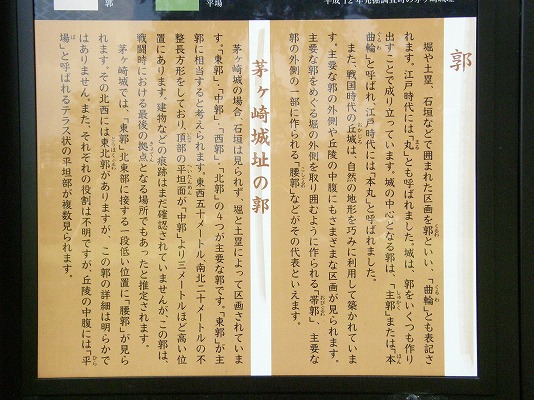 郭
平場
平成12年発掘調査時の茅ヶ崎城址
郭
堀や土塁、石垣などで囲まれた区画を郭といい、「曲輪」とも表記さ
れます。江戸時代には「丸」とも呼ばれました。城は、郭をいくつも作り
出すことで成り立っています。城の中心となる郭は、「主郭」または「本
曲輪」と呼ばれ、江戸時代には「本丸」と呼ばれました。
また、戦国時代の丘城は、自然の地形を巧みに利用して築かれていま
す。主要な郭の外側や丘陵の中腹にもさまざまな区画が見られます。
主要な郭をめぐる堀の外側を取り囲むように作られる「帯郭」、主要な
郭の外側の一部に作られる「腰郭」などがその代表といえます。
茅ヶ崎城址の郭
茅ヶ崎城の場合、石垣は見られず、堀と土塁によって区画されていま
す。「東郭」、「中郭」、「西郭」、「北郭」の4つが主要な郭です。「東郭」が主
郭に相当すると考えられます。東西五十メートル、南北二十メートルの不
整長方形をしており、頂部の平坦面が「中郭」より三メートルほど高い位
置にあります。建物などの痕跡はまだ確認されていませんが、この郭は、
戦闘時における最後の拠点となる場所でもあったと推定されます。
茅ヶ崎城では、「東郭」北東部に接する一段低い位置に「腰郭」が見ら
れます。その北西には東北郭がありますが、この郭の詳細は明らかで
はありません。また、それぞれの役割は不明ですが、丘陵の中腹には「平
場」と呼ばれるテラス状の平坦部が複数見られます。